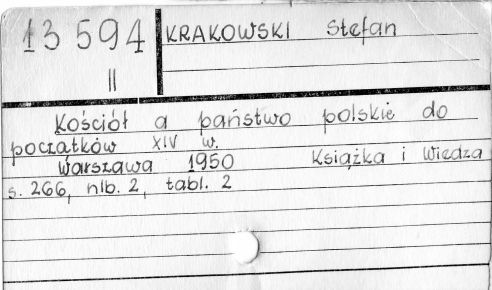 13 594
II
KRAKOWSKI Stefan
Kościół a państwo polskie do
początków XIV w.
Warszawa 1950 Książka i Wiedza
s. 266, nlb. 2, tabl. 2